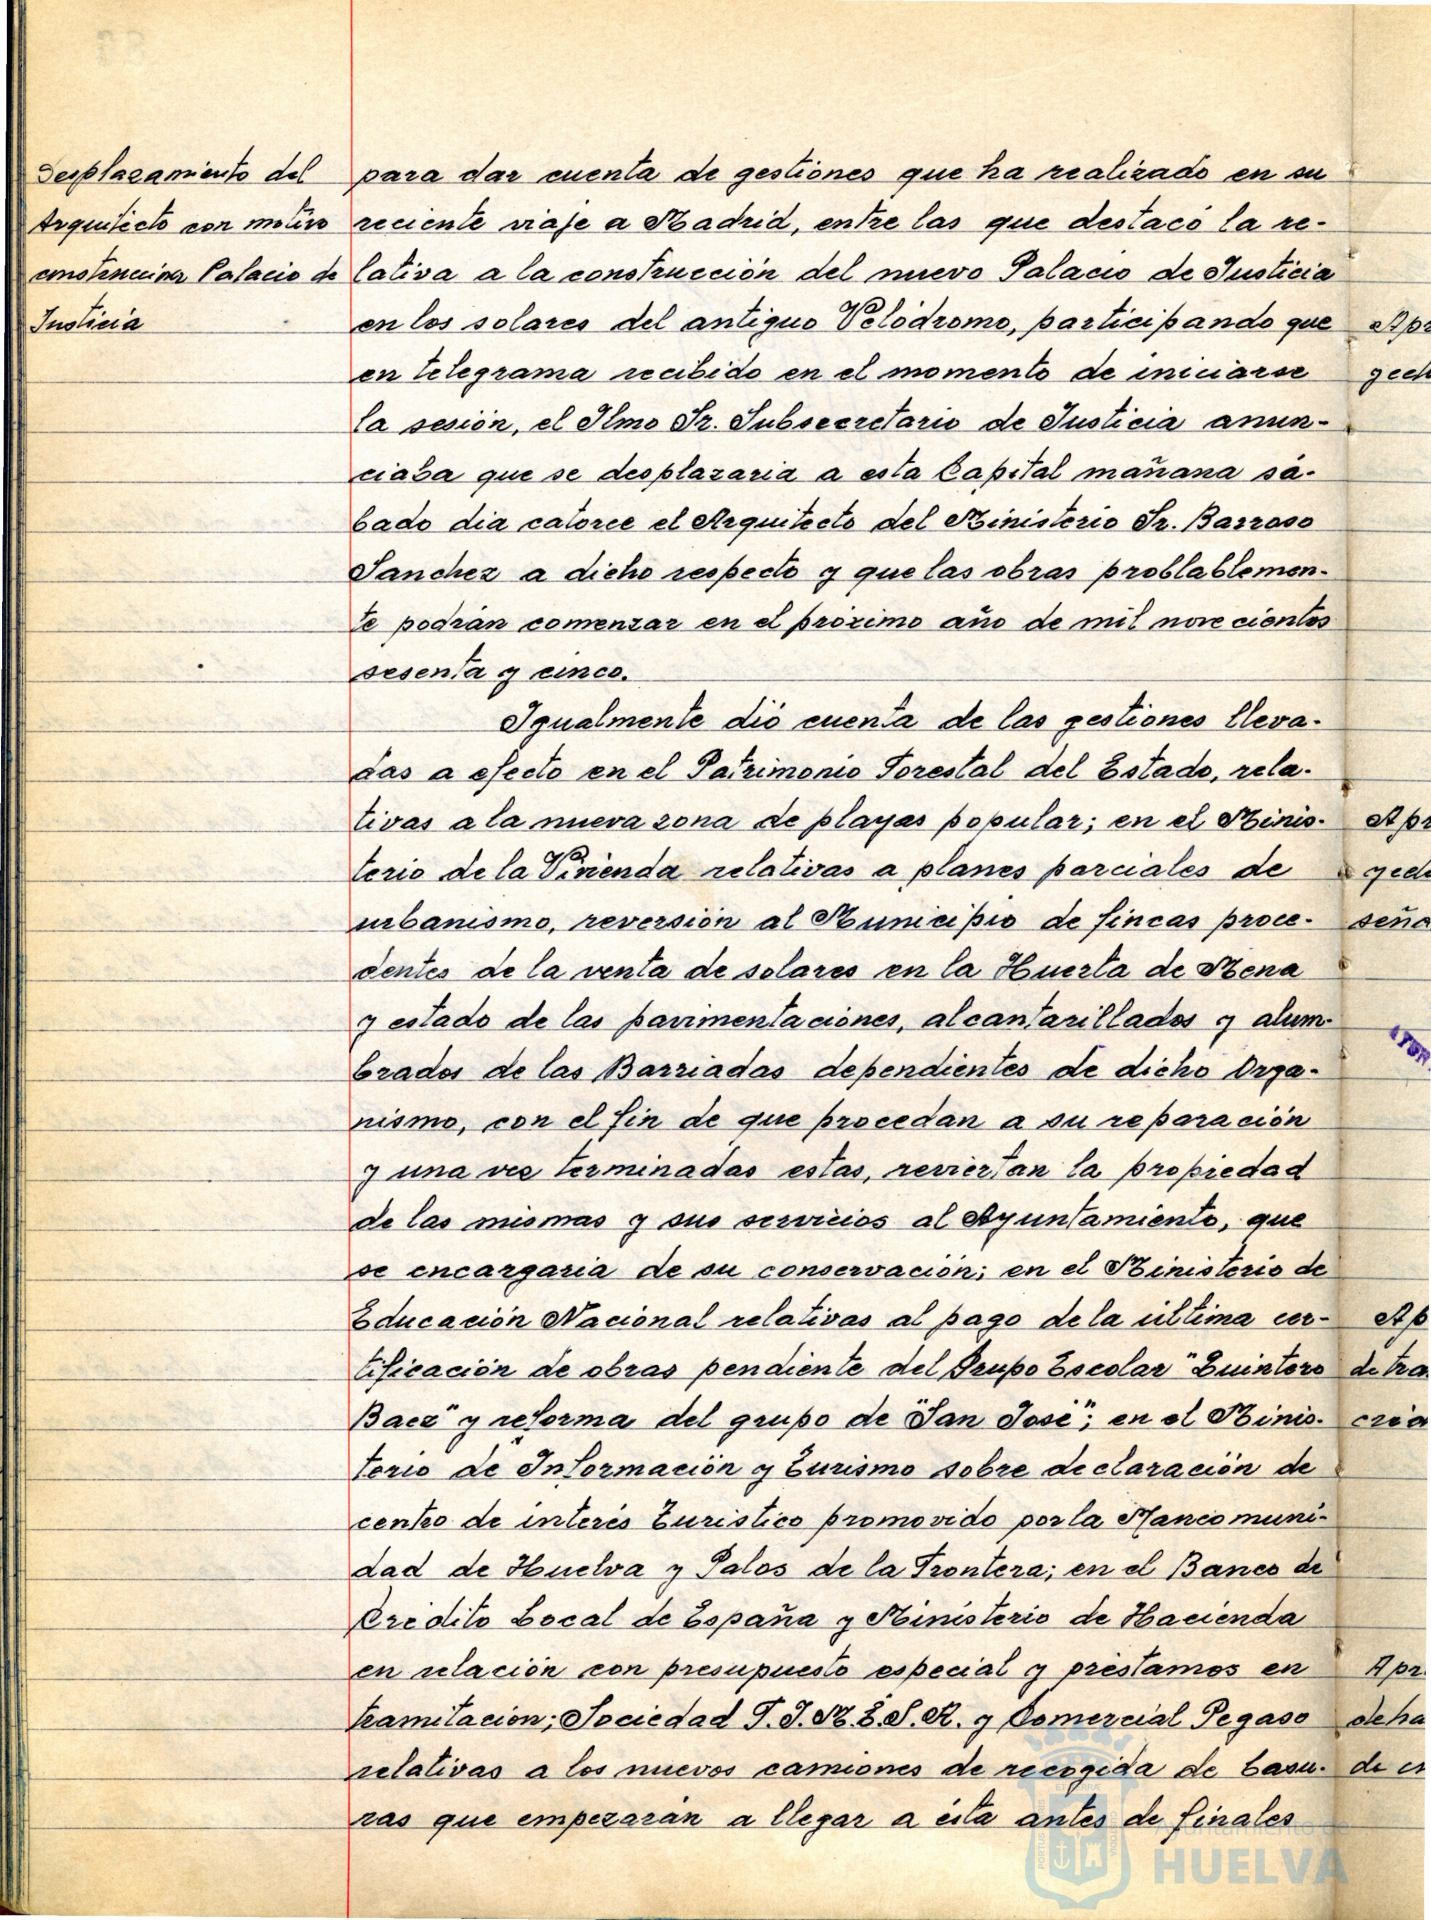 Desplazamiento del
Arquitecto con motivo
construccion Palacio de
Justicia
para dar cuenta de gestiones que ha realizado en su
reciente viaje a Madrid, entre las que destacó la re-
lativa a la construcción del nuevo Palacio de Justicia
en los solares del antiguo Velódromo, participando que
en telegrama recibido en el momento de iniciarse
la sesión, el Ilmo Sr. Subsecretario de Justicia anun-
ciaba que se desplazaria a esta Capital mañana sá-
bado dia catorce el Arquitecto del Ministerio Sr. Barroso
Sanchez a dicho respecto y que las obras problablemen-
te podrán comenzar en el próximo año de mil novecientos
sesenta y cinco.
Igualmente dió cuenta de las gestiones lleva-
das a efecto en el Patrimonio Forestal del Estado, rela-
tivas a la nueva zona de playas popular; en el Minis-
terio de la Vivienda relativas a planes parciales de
urbanismo, reversión al Municipio de fincas proce-
dentes de la venta de solares en la Huerta de Mena
y estado de las pavimentaciones, alcantarillados y alum-
brados de las Barriadas dependientes de dicho Orga-
nismo, con el fin de que procedan a su reparación
y una vez terminadas estas, reviertan la propiedad
de las mismas y sus servicios al Ayuntamiento, que
se encargaria de su conservación; en el Ministerio de
Educación Nacional relativas al pago de la última cer-
tificación de obras pendiente del Grupo Escolar "Quintero
Baez" y reforma del grupo de "San José"; en el Minis-
terio de Información y Turismo sobre declaración de
centro de interés Turistico promovido por la Mancomuni-
dad de Huelva y Palos de la Frontera; en el Banco de
Crédito Local de España y Ministerio de Hacienda
en relación con presupuesto especial y préstamos en
tramitación; Sociedad F.I.M.E.S.A. y Comercial Pegaso
relativas a los nuevos camiones de recogida de basu-
ras que empezarán a llegar a ésta antes de finales
Ayuntamiento de
HUELVA